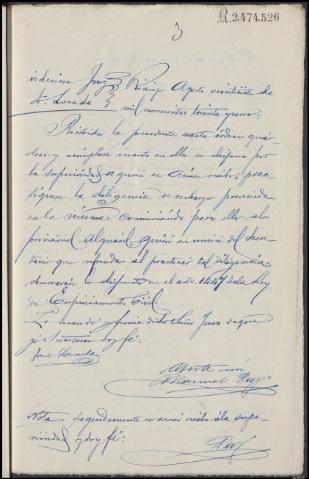 3
R.2.474.526
Providencia Juez Rianjo Agosto veintiseis de
Sr. Losada mil novecientos treinta y uno:
Recibida la precedente carta órden guár-
dese y cúmplase cuanto en ella se dispone por
la superioridad a quien se acuse recibo; prac-
tíquese la diligencia de embargo prevenida
en la misma comisionándo para ello al
Alguacil, quien en union del Secre-
tario que refrenda al practicar tal diligencia
observarán lo dispuesto en el art. 1447 de la Ley
de Enjuiciamiento Civil
Lo mandó y firma dicho Señor Juez de que
yó Secretario doy fé.
José Losada
Ante mí
Manuel Rey
Nota. Seguidamente se acusó recibo á la supe-
rioridad y doy fé:
Rey